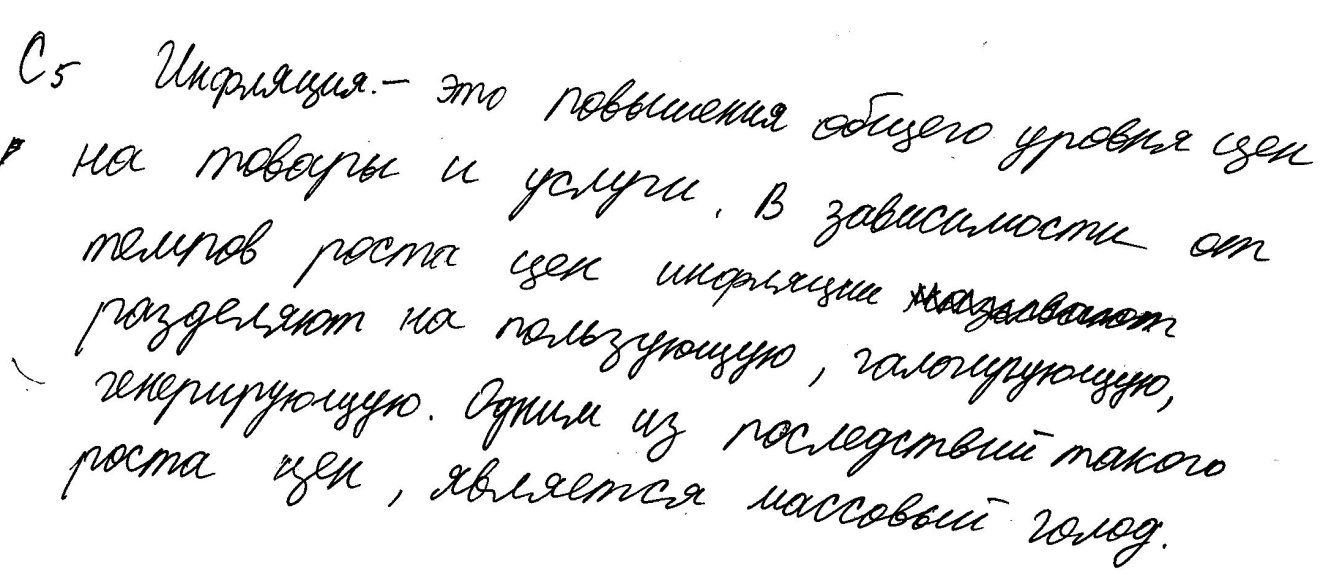 С5 Инфляция.– это повышения общего уровня цен
на товары и услуги. В зависимости от
темпов роста цен инфляции
разделяют на пользующую, галопирующую,
генерирующую. Одним из последствий такого
роста цен, является массовый голод.